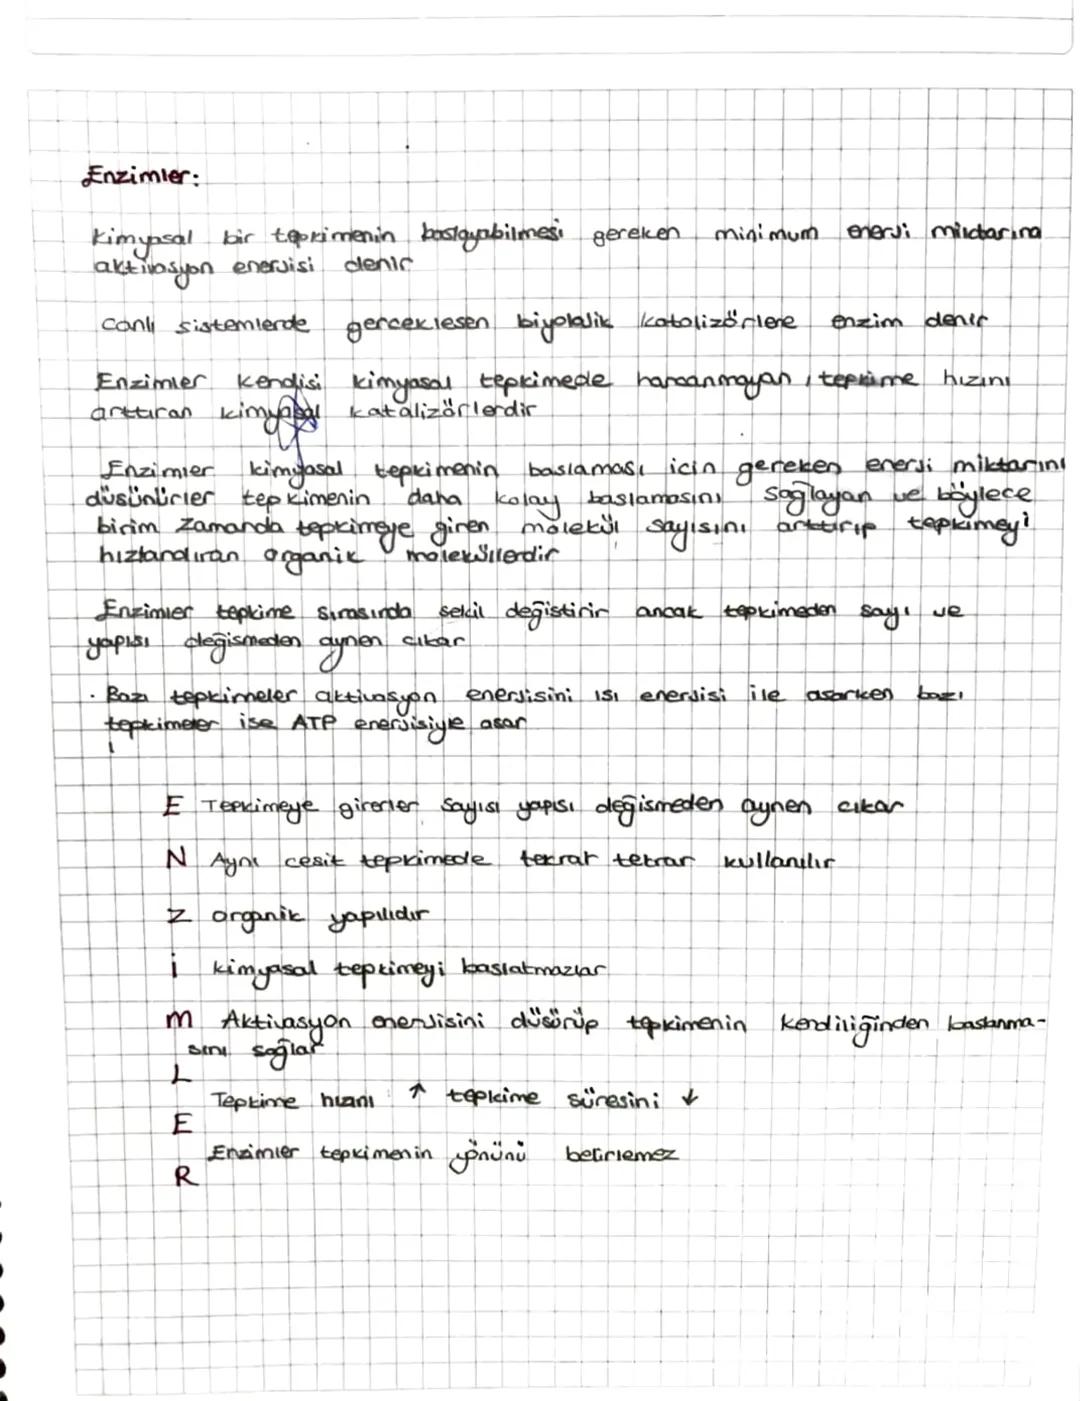 Enzimler:
Kimyasal bir tepkimenin baslayabilmesi gereken minimum enerji miktarına
aktivasyon enerjisi denir
canlı sistemlerde gerceklesen biyolojik katalizörlere enzim denir
Enzimler kendisi kimyasal tepkimede harcanmayan, tepkime hızını
arttıran kimyasal katalizörlerdir
Enzimler kimyasal tepkimenin baslaması icin gereken enerji miktarını
düsünürler tepkimenin daha kolay baslamasını sağlayan ve böylece
birim zamanda tepkimeye giren molekül sayısını arttırıp tepkimeyi
hızlandıran organik moleküllerdir
Enzimler tepkime sırasında sekil değistirir ancak tepkimeden sayı ve
yapısı değismeden aynen cıkar
· Bazı tepkimeler aktivasyon enerjisini ısı enerjisi ile asarken bazı
tepkimeler ise ATP enerjisiyle asar
E Tepkimeye girerler sayısı yapısı değismeden aynen cıkar
N Aynı cesit tepkimede tekrar tekrar kullanılır
Z organik yapılıdır
i kimyasal tepkimeyi baslatmazlar
m Aktivasyon enerjisini düsürüp tepkimenin kendiliğinden baslanma-
sını sağlar
L
Tepkime hızını ↑ tepkime süresini ↓
E
Enzimler tepkimenin yönünü belirlemez
R